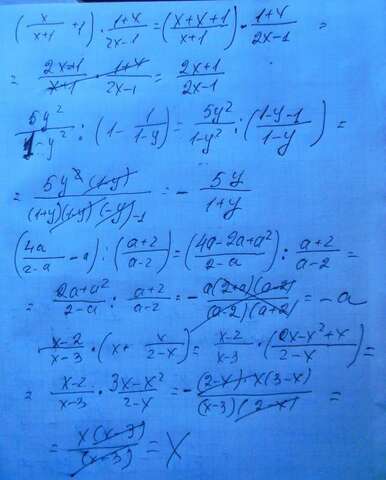 (x/(x+1) + 1) · (1+x)/(2x-1) = ((x+x+1)/(x+1)) · (1+x)/(2x-1) =
= (2x+1)/(x+1) · (1+x)/(2x-1) = (2x+1)/(2x-1)
5y²/(1-y²) : (1 - 1/(1-y)) = 5y²/(1-y²) : ((1-y-1)/(1-y)) =
= 5y²(1-y)/((1+y)(1-y)(-y)-1) = - 5y/(1+y)
(4a/(2-a) - a) : ((a+2)/(a-2)) = ((4a-2a+a²)/(2-a)) : (a+2)/(a-2) =
= (2a+a²)/(2-a) : (a+2)/(a-2) = - a(2+a)(a-2)/((a-2)(a+2)) = -a
(x-2)/(x-3) · (x + x/(2-x)) = (x-2)/(x-3) · ((2x-x²+x)/(2-x)) =
= (x-2)/(x-3) · (3x-x²)/(2-x) = - (2-x)·x(3-x)/((x-3)(2-x)) =
= x(x-3)/(x-3) = x